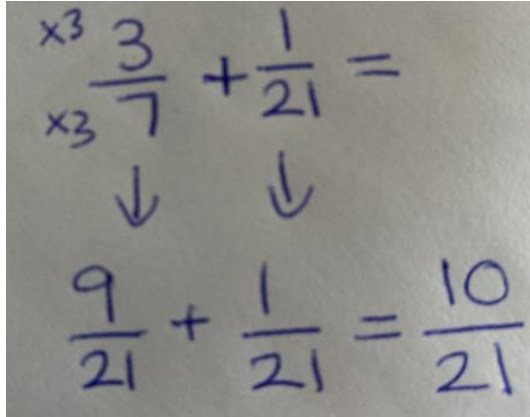 ×3 3/7 + 1/21 =
×3
↓ ↓
9/21 + 1/21 = 10/21